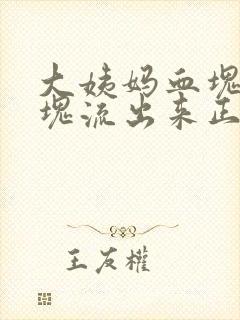 大姨妈血块
块流出来正
王友權